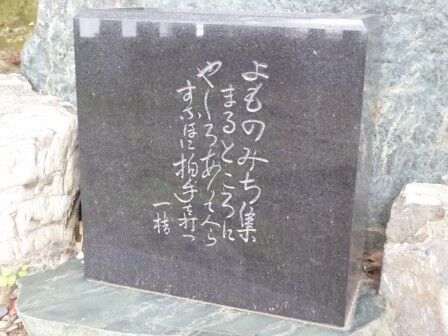 よものみち集
まるところに
やしろあり人ら
すなほに拍手を打つ
一精